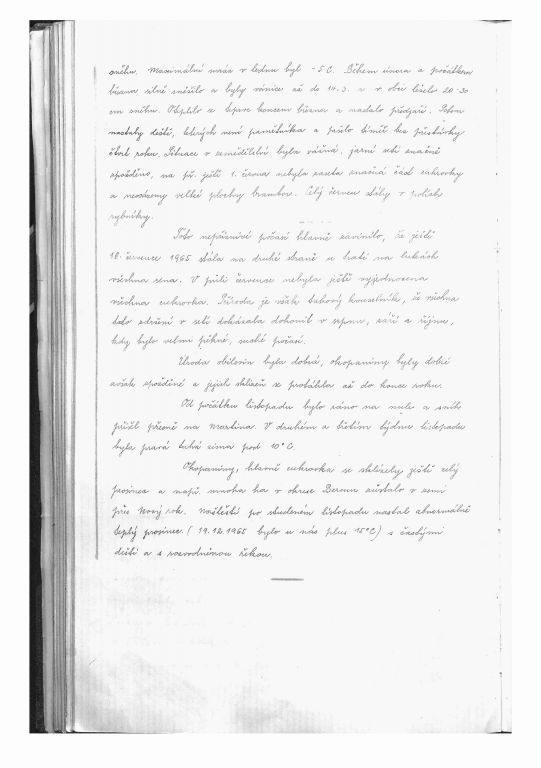 sněhu. Maximální mráz v lednu byl -5°C. Během února a počátkem
března silně sněžilo a byly vánice až do 14.3. a v obci leželo 20-30
cm sněhu. Oteplilo a teprve koncem března a nastalo předjaří. Potom
nastaly deště, kterých není pamětníka a pršelo téměř bez přestávky
čtvrt roku. Situace v zemědělství byla vážná, jarní setí značně
opožděno, na př. ještě 1. června nebyla zaseta značná část cukrovky
a neosázeny velké plochy brambor. Celý červenec stály v polích
rybníky.
Toto nepříznivé počasí hlavně zavinilo, že ještě
18. července 1965 stála na druhé straně u trati na lukách
všechna sena. V půli července nebyla ještě vyjednocena
všechna cukrovka. Příroda je však takový kouzelník, že všechno
toto zdržení v setí dokázala dohonit v srpnu, září a říjnu,
kdy bylo velmi pěkné, suché počasí.
Úroda obilovin byla dobrá, okopaniny byly dobré
avšak opožděné a jejich sklizeň se protáhla až do konce roku.
Od počátku listopadu bylo ráno na nule a sníh
přišel přesně na Martina. V druhém a třetím týdnu listopadu
byla pravá tuhá zima pod 10°C.
Okopaniny, hlavně cukrovka se sklízely ještě celý
prosinec a např. mnoho ha v okrese Beroun zůstalo v zemi
přes Nový rok. Naštěstí po studeném listopadu nastal abnormálně
teplý prosinec (19.12.1965 bylo u nás plus 15°C) s častými
dešti a s rozvodněnou řekou.